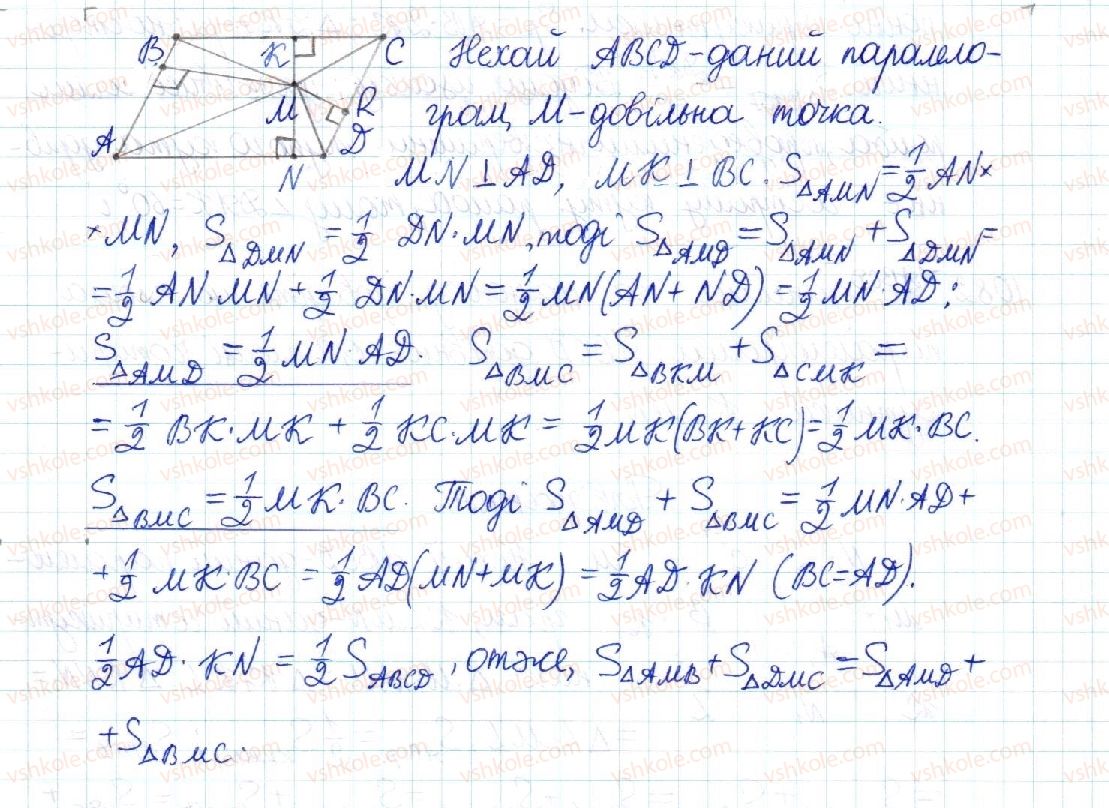 B K C
M R
A N D
Нехай ABCD-даний паралело-
грам, M-довільна точка.
MN⊥AD, MK⊥BC. S△AMN = 1/2 AN×
×MN, S△DMN = 1/2 DN·MN, тоді S△AMD = S△AMN + S△DMN =
= 1/2 AN·MN + 1/2 DN·MN = 1/2 MN(AN + ND) = 1/2 MN·AD;
S△AMD = 1/2 MN·AD. S△BMC = S△BKM + S△CMK =
= 1/2 BK·MK + 1/2 KC·MK = 1/2 MK(BK+KC) = 1/2 MK·BC.
S△BMC = 1/2 MK·BC. Тоді S△AMD + S△BMC = 1/2 MN·AD +
+ 1/2 MK·BC = 1/2 AD(MN+MK) = 1/2 AD·KN (BC=AD).
1/2 AD·KN = 1/2 SABCD, отже, S△AMB + S△DMC = S△AMD +
+ S△BMC.
vshkole.com